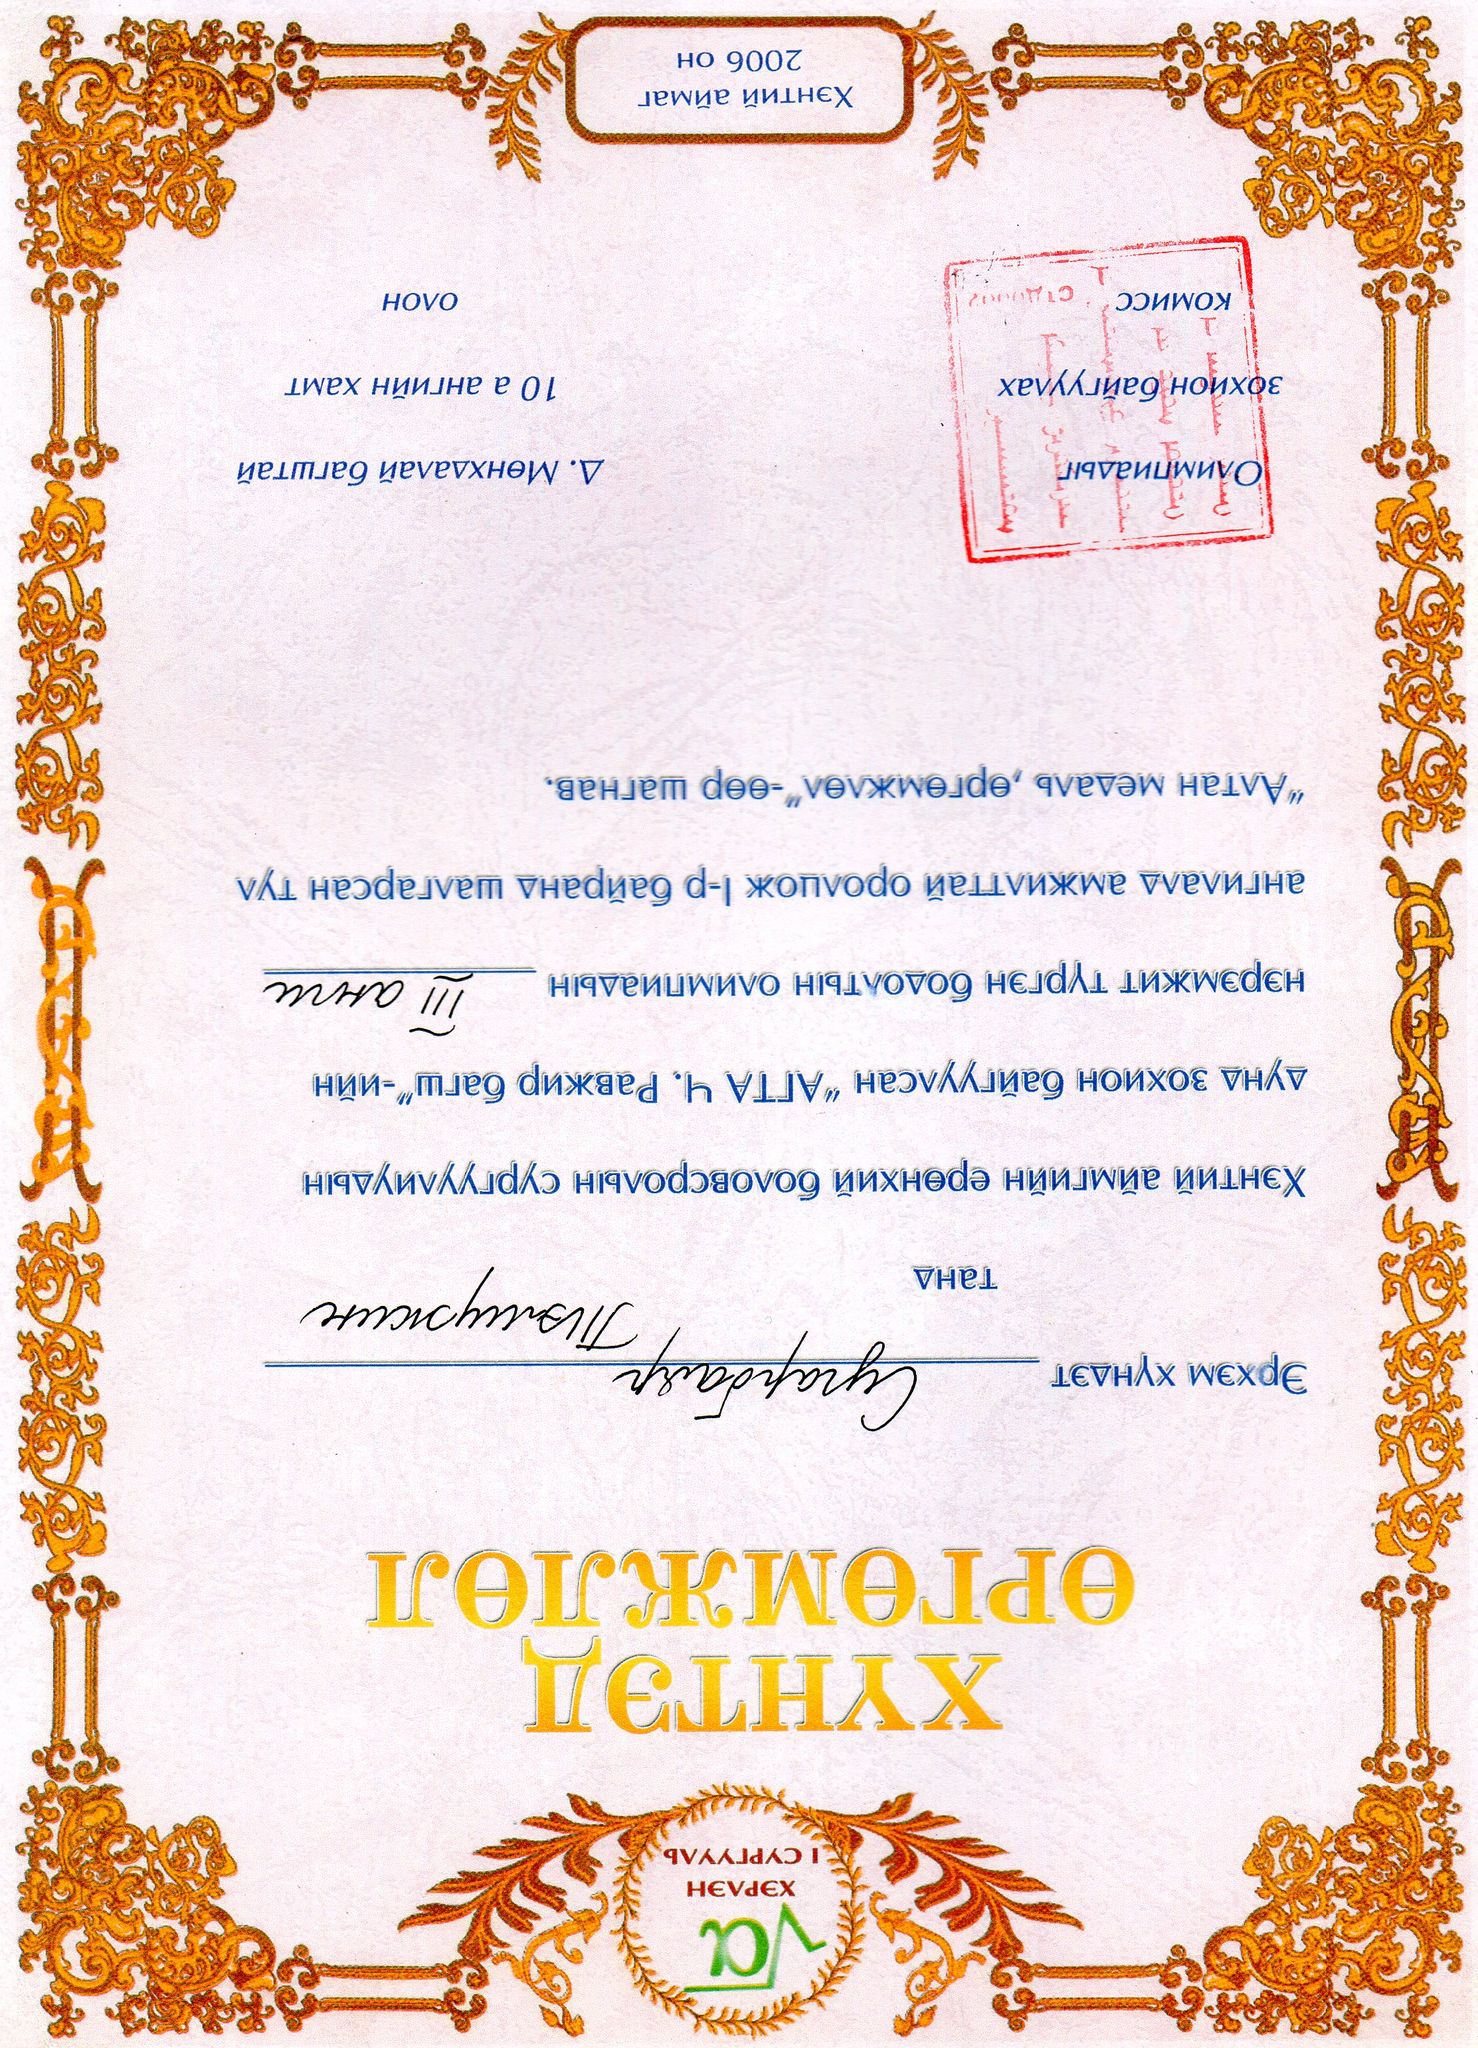 √a
ХЭРЛЭН
I СУРГУУЛЬ
ХҮНТЭД
ӨРГӨМЖЛӨЛ
Эрхэм хүндэт Сугарбаяр
Тэмужин
танд
Хэнтий аймгийн ерөнхий боловсролын сургуулиудын
дунд зохион байгуулсан “АГТА Ч. Равжир багш”-ийн
нэрэмжит түргэн бодолтын олимпиадын III анги
ангилалд амжилттай оролцож I-р байранд шалгарсан тул
“Алтан медаль ,өргөмжлөл”-өөр шагнав.
Олимпиадыг
зохион байгуулах
комисс
Д. Мөнхдалай багштай
10 а ангийн хамт
олон
Хэнтий аймаг
2006 он